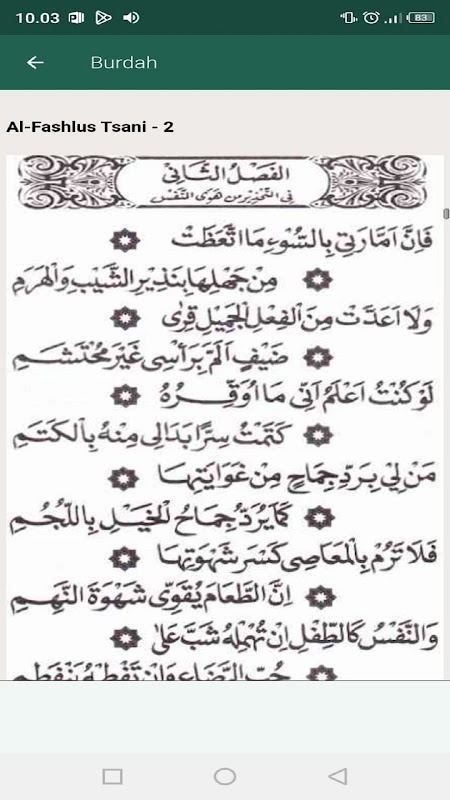 10.03
83
Burdah
Al-Fashlus Tsani - 2
الفصل الثاني
في التحذير من هوى النفس
فَاِنَّ اَمَّارَتِيْ بِالسُّوْءِ مَا اتَّعَظَتْ
مِنْ جَهْلِهَا بِنَذِيْرِ الشَّيْبِ وَالْهَرَمِ
وَلَا اَعَدَّتْ مِنَ الْفِعْلِ الْجَمِيْلِ قِرٰى
ضَيْفٍ اَلَمَّ بِرَأْسِيْ غَيْرَ مُحْتَشَمِ
لَوْ كُنْتُ اَعْلَمُ اَنِّيْ مَا اُوَقِّرُهُ
كَتَمْتُ سِرًّا بَدَا لِيْ مِنْهُ بِالْكَتَمِ
مَنْ لِيْ بِرَدِّ جِمَاحٍ مِنْ غَوَايَتِهَا
كَمَا يُرَدُّ جِمَاحُ الْخَيْلِ بِاللُّجُمِ
فَلَا تَرُمْ بِالْمَعَاصِيْ كَسْرَ شَهْوَتِهَا
اِنَّ الطَّعَامَ يُقَوِّيْ شَهْوَةَ النَّهِمِ
وَالنَّفْسُ كَالطِّفْلِ اِنْ تُهْمِلْهُ شَبَّ عَلٰى
حُبِّ الرَّضَاعِ وَاِنْ تَفْطِمْهُ يَنْفَطِمِ